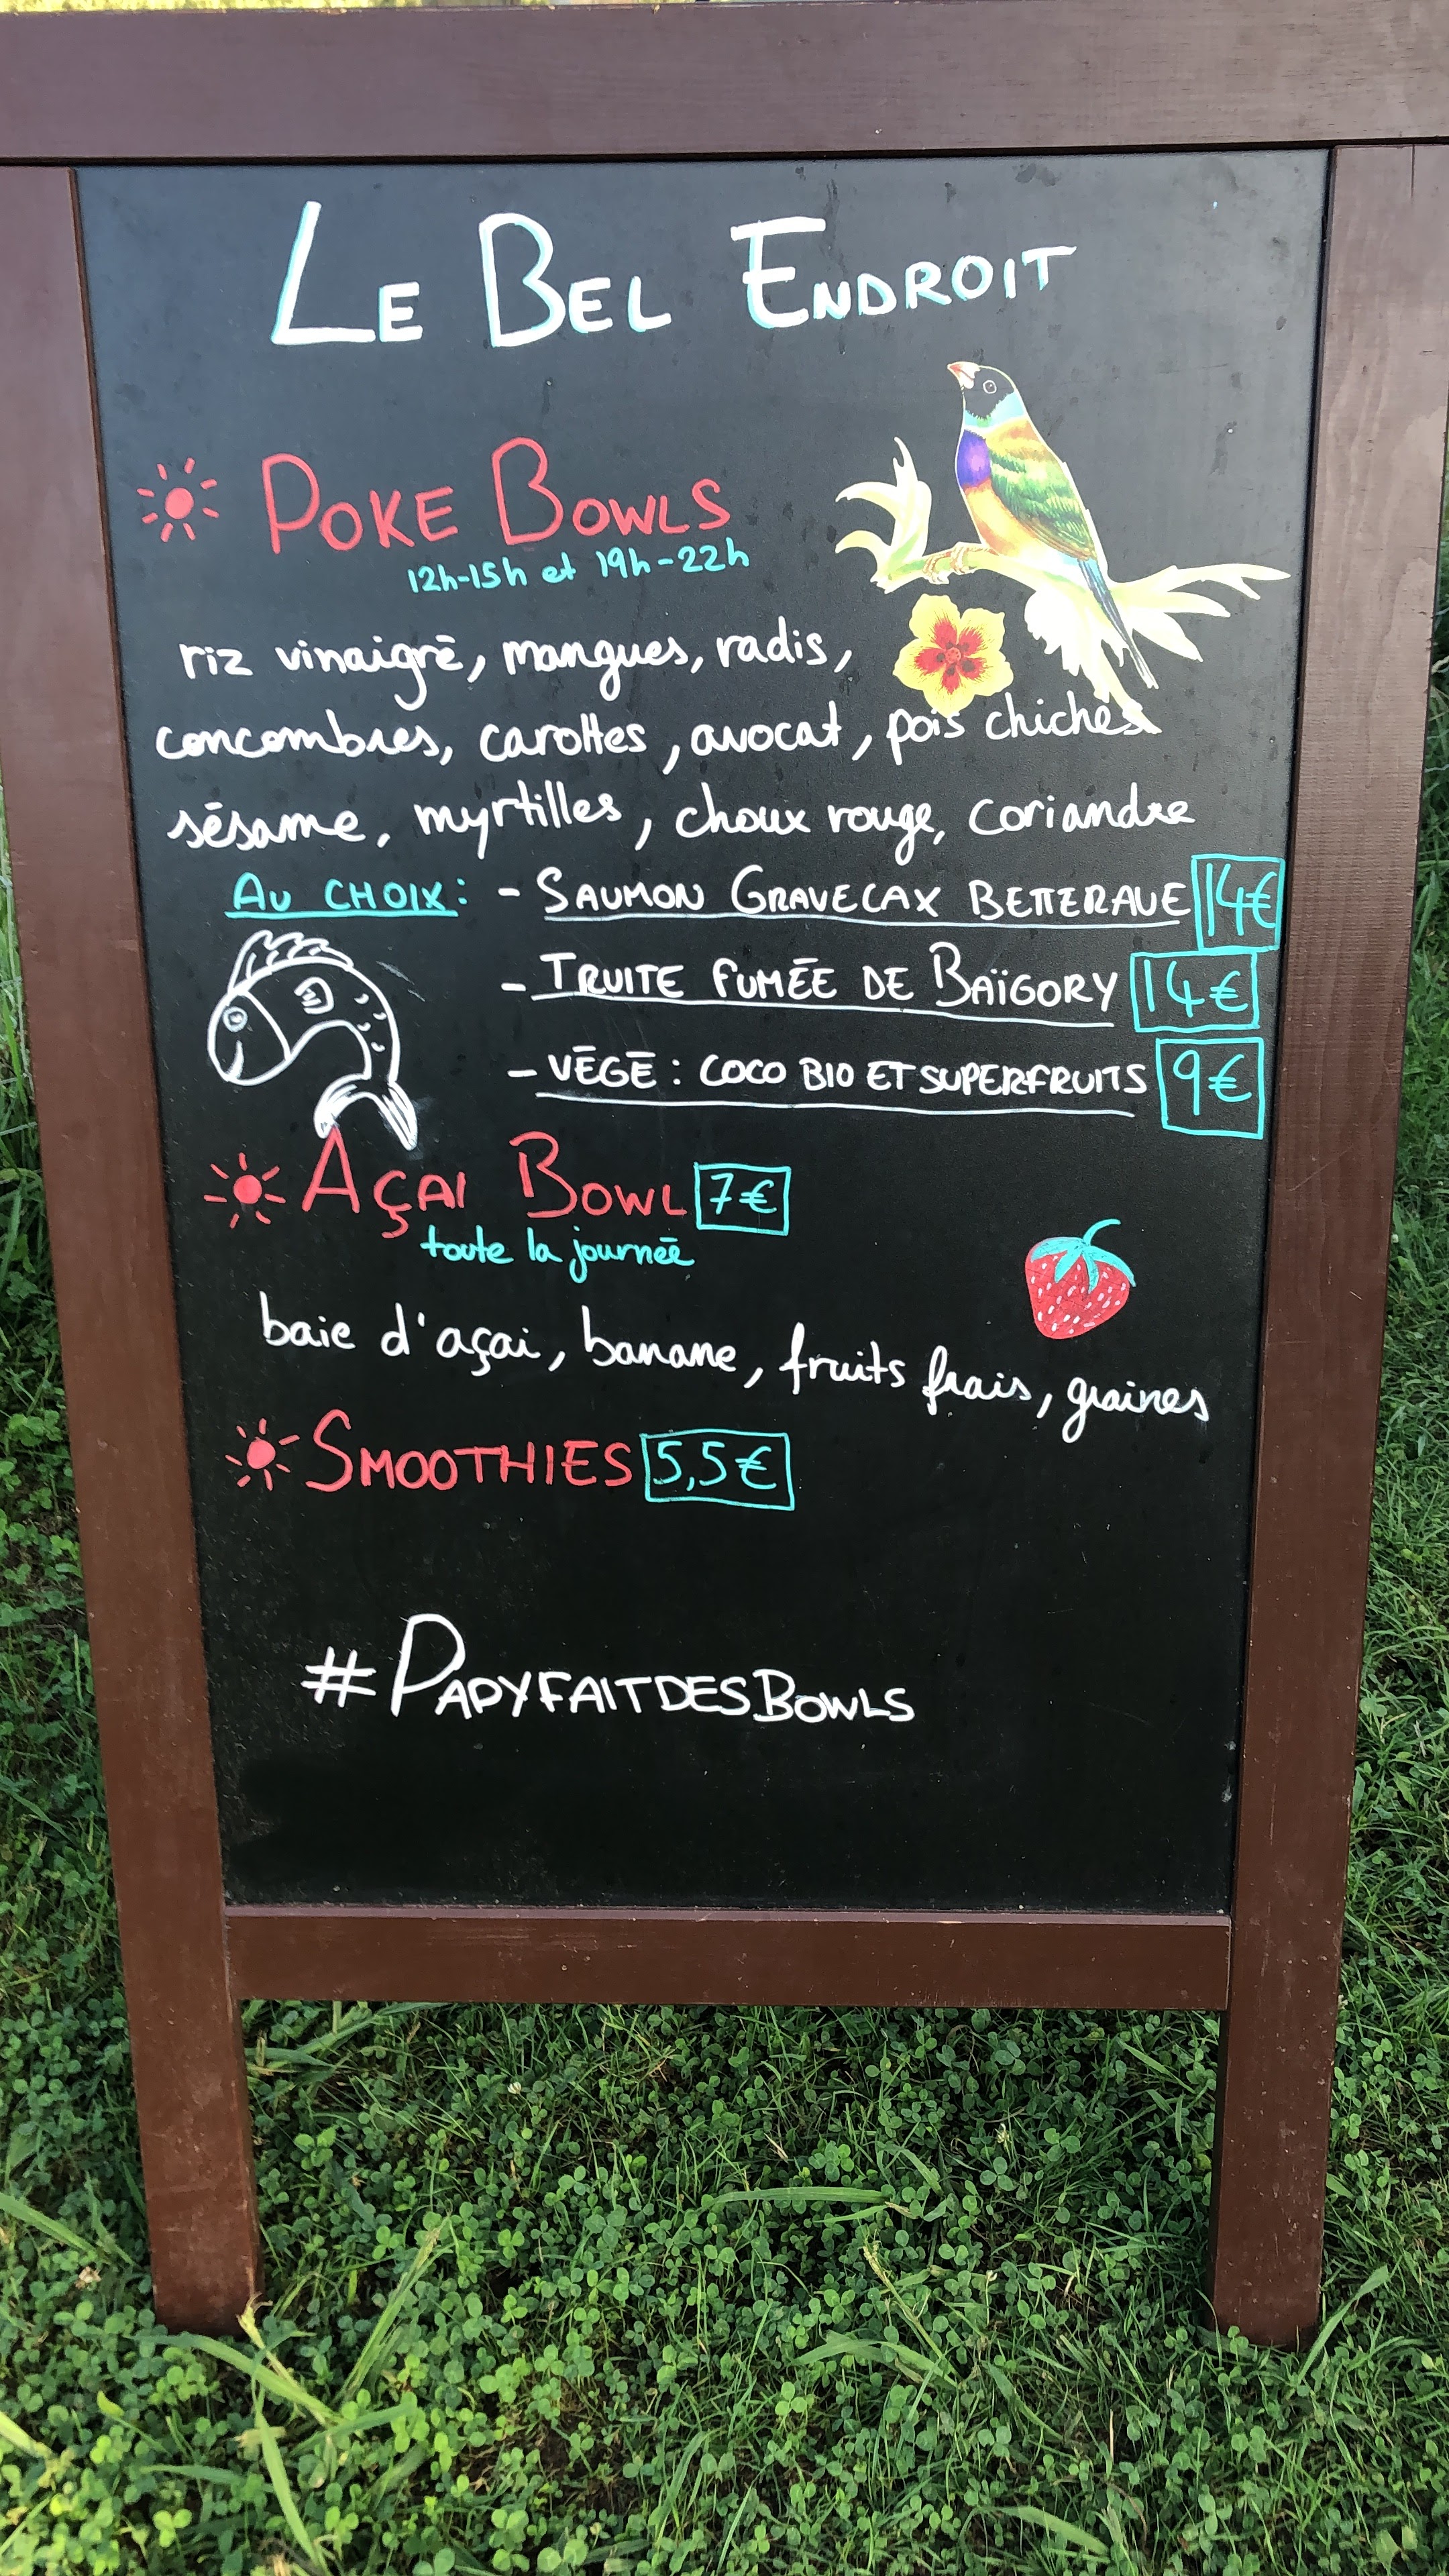 LE BEL ENDROIT
POKE BOWLS
12h-15h et 19h-22h
riz vinaigré, mangues, radis,
concombres, carottes, avocat, pois chiches
sésame, myrtilles, choux rouge, coriandre
AU CHOIX: - SAUMON GRAVELAX BETTERAVE 14€
- TRUITE FUMÉE DE BAÏGORY 14€
- VÉGÉ : COCO BIO ET SUPERFRUITS 9€
AÇAI BOWL 7€
toute la journée
baie d'açai, banane, fruits frais, graines
SMOOTHIES 5,5€
#PAPYFAITDESBOWLS